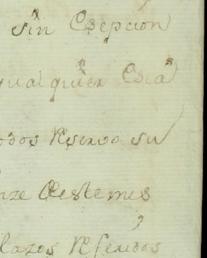 sin Esepcion
qualquier Esta
odos Reservo su
nze Deste mes
lazos Referidos